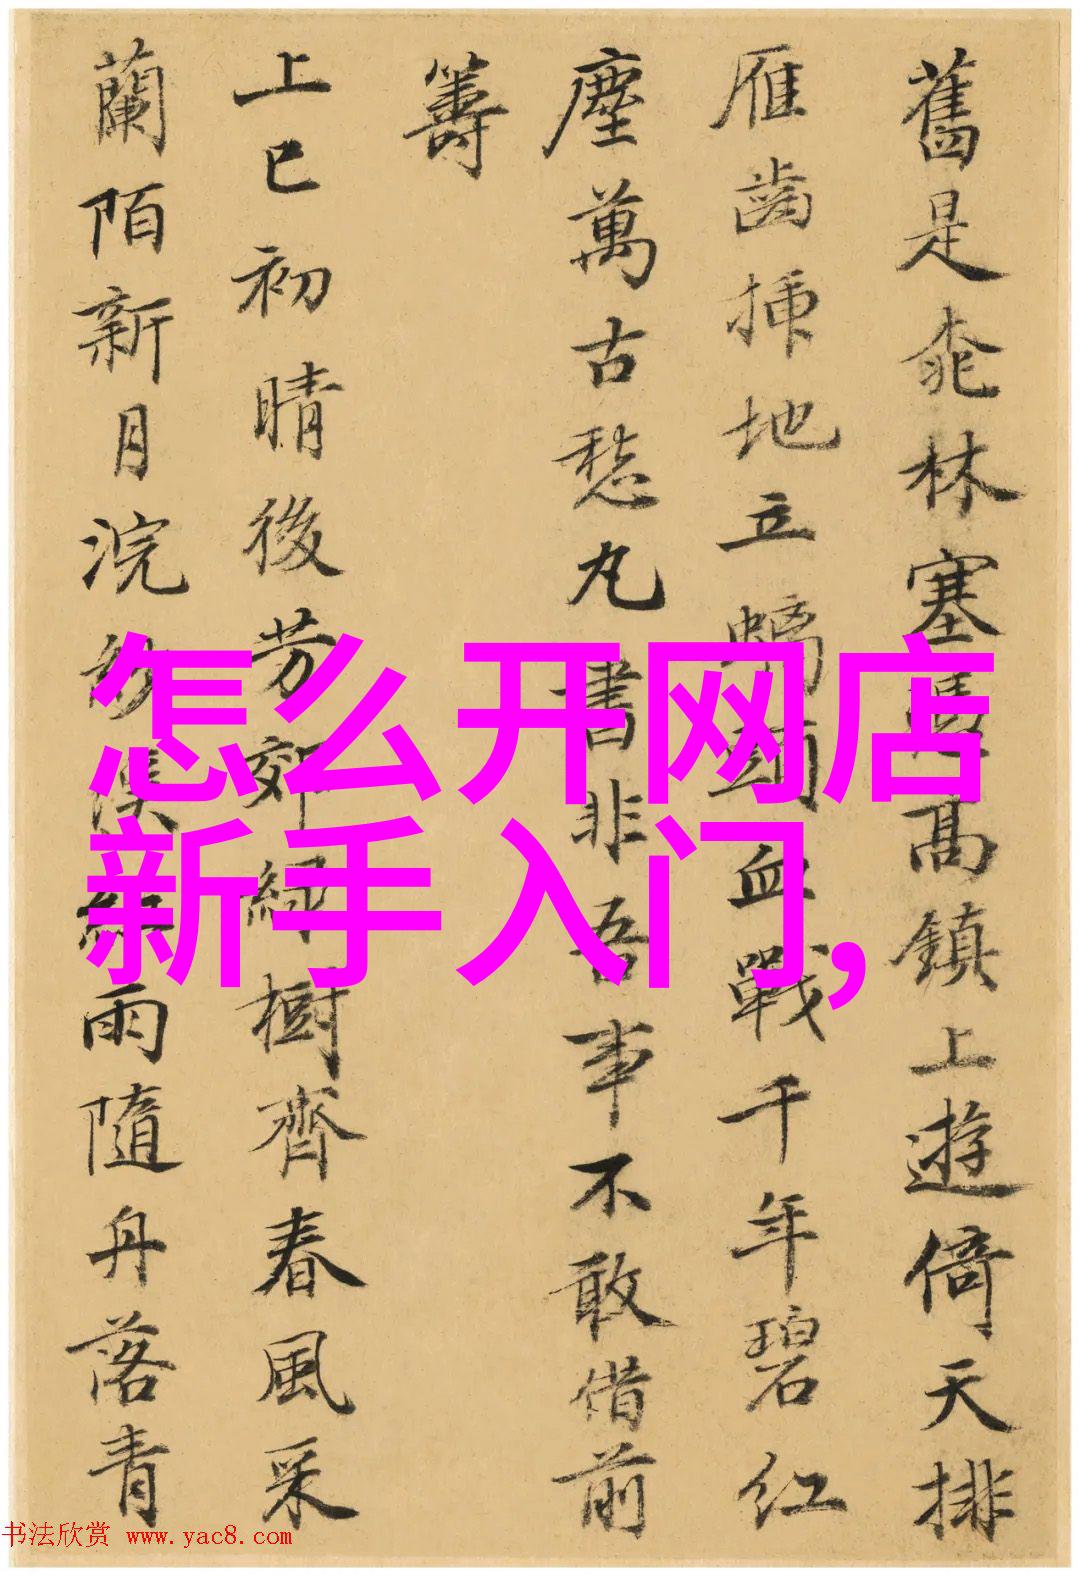 舊是桃林塞馬高鎮上遊倚天排
雁齒插地立螭頭血戰千年碧紅
塵萬古愁丸書非吾事不敢借前
籌
上巳初晴後芳郊綠樹齊春風采
蘭陌新月浣紗溪紅雨隨舟落青
怎么开网店
新手入门,
书法欣赏 www.yac8.com